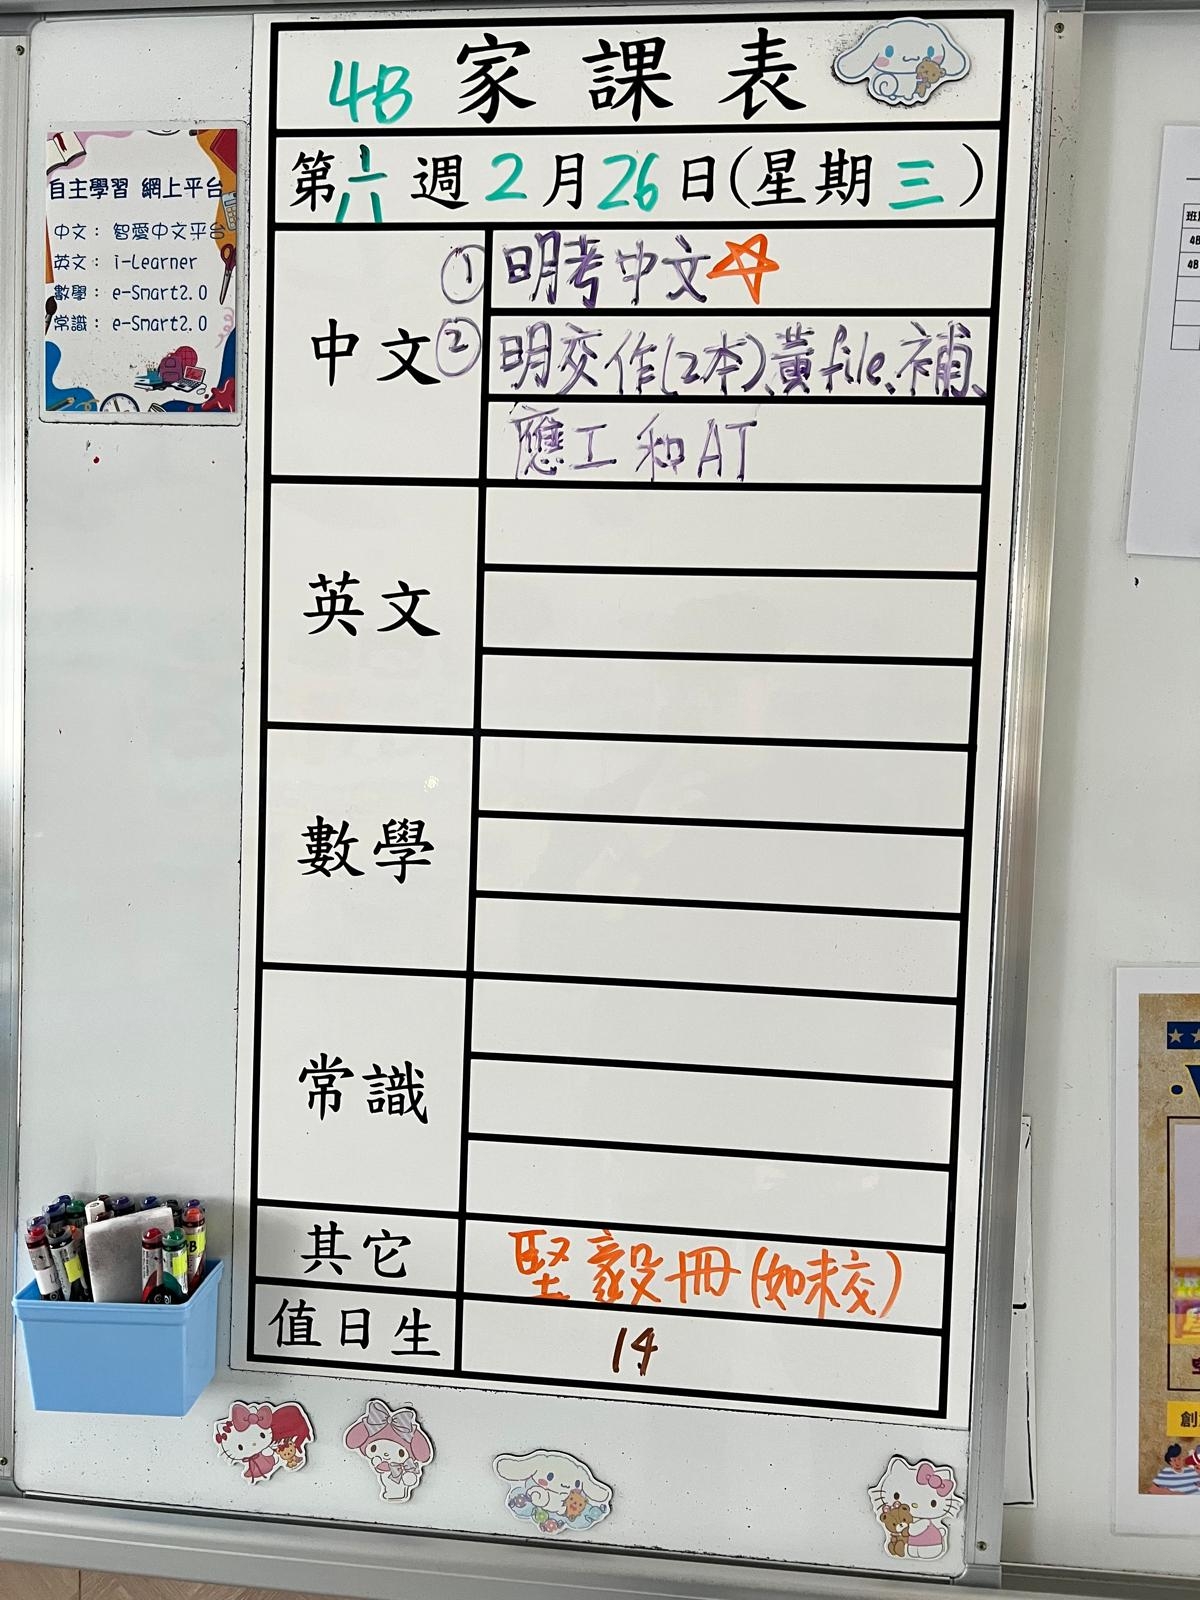 4B 家課表
第六週2月26日(星期三)
自主學習 網上平台
中文: 智愛中文平台
英文: i-Learner
數學: e-Smart2.0
常識: e-Smart2.0
中文
① 明考中文☆
② 明交作(2本)、黃file、補、
應工和AT
英文
數學
常識
其它
堅毅冊(如未交)
值日生
14
4B
4B
創